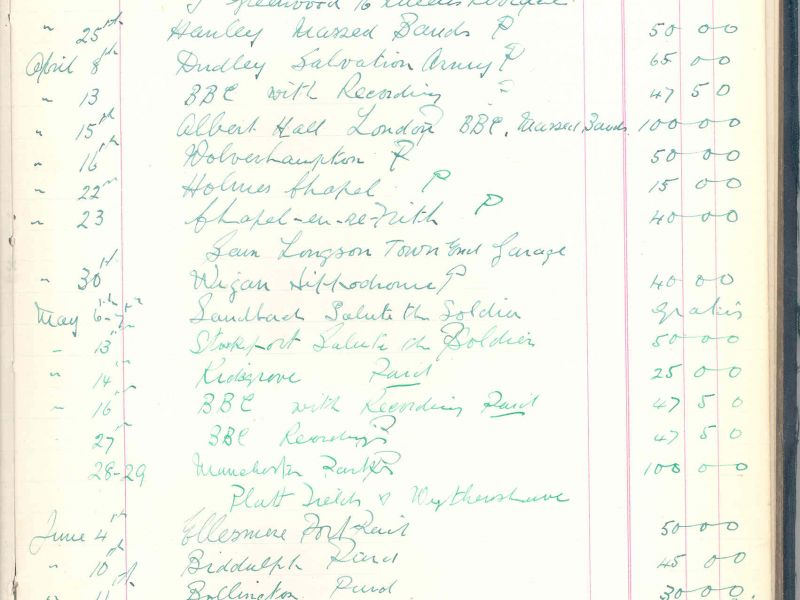 " 25th Hanley Massed Bands P 50 0 0
April 8th Dudley Salvation Army P 65 0 0
" 13 BBC with Recording = 47 5 0
" 15th Albert Hall London P BBC. Massed Bands 100 0 0
" 16th Wolverhampton P 50 0 0
" 22nd Holmes Chapel P 15 0 0
" 23 Chapel-en-le-Frith P 40 0 0
Sam Longson Town End Garage
" 30th Wigan Hippodrome P 40 0 0
May 6-7th Sandbach Salute th Soldier gratis
" 13th Stockport Salute th Soldier P 50 0 0
" 14th Kidsgrove Paid 25 0 0
" 16th BBC with Recording Paid 47 5 0
27th BBC Recording P 47 5 0
28-29 Manchester Parks P 100 0 0
Platt Fields & Wythenshawe
June 4th Ellesmere Port Paid 50 0 0
" 10th Biddulph Paid 45 0 0
" 11th Bollington Paid 30 0 0.